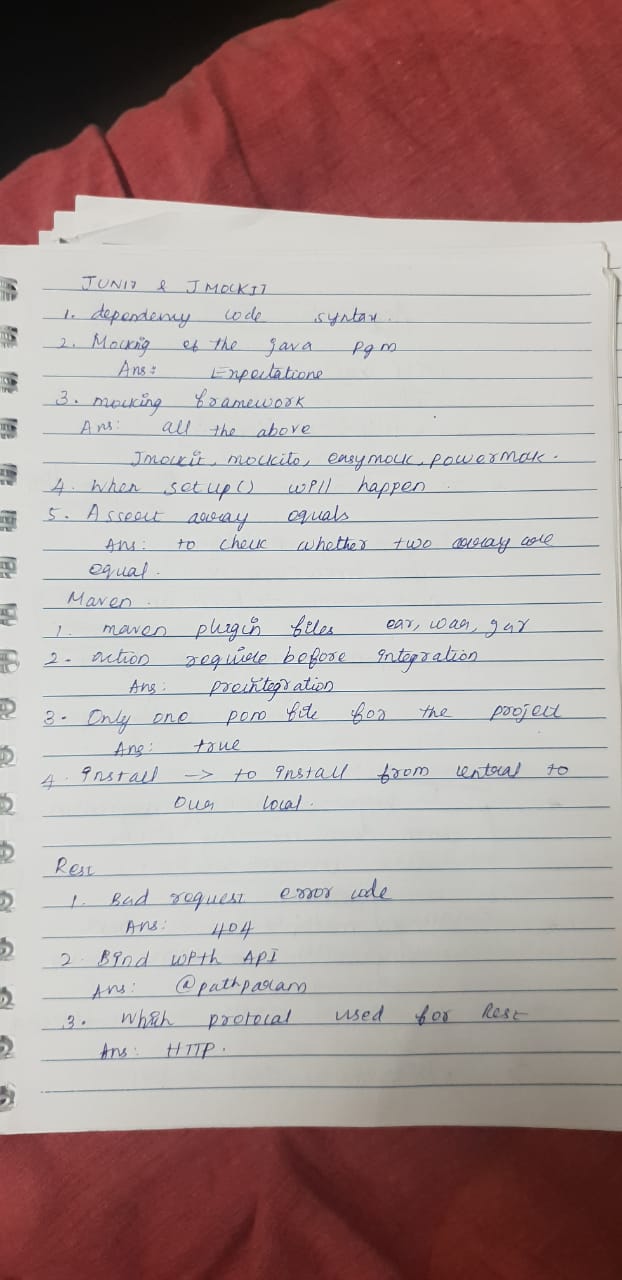 JUNIT & JMOCKIT
1. dependency code syntax.
2. Mocking of the java pgm
Ans: Expectations
3. mocking framework
Ans: all the above
Jmockit, mockito, easymock, powermock.
4. When setup() will happen.
5. Assert array equals
Ans: to check whether two array are
equal.
Maven.
1. maven plugin files ear, war, jar
2. action require before integration
Ans: preintegration
3. Only one pom file for the project
Ans: true
4. install -> to install from central to
Our local.
Rest
1. Bad request error code
Ans: 404
2. Bind with API
Ans: @pathparam
3. Which protocal used for Rest
Ans: HTTP.